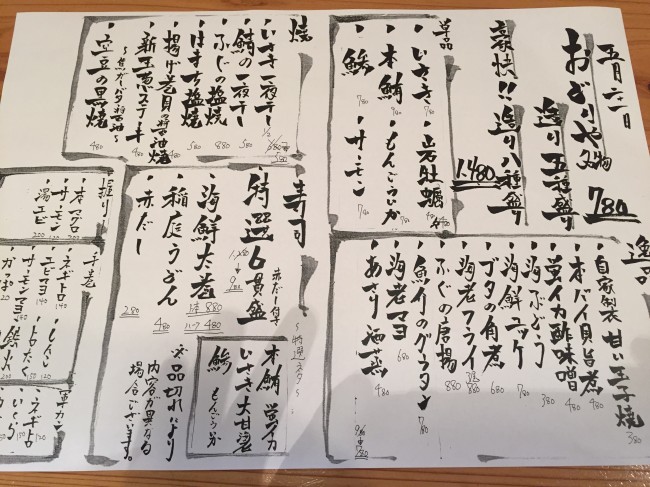 五月二十一日
おどりや名物
造り五種盛り 780
豪快!!造り八種盛り 1,480
単品
・いさき 780
・岩牡蠣
・本鮪 780
・もんごういか
・鯵
・サーモン
焼
・いさき一夜干
・鯖の一夜干 580
・ふぐの塩焼 880
・はまち塩焼 580
・揚げ巻貝の醤油焼 480
・新玉葱ステーキ 480
〜焦がしバタ醤油〜
・空豆の黒焼 480
逸品
・自家製 甘い玉子焼 380
・本バイ貝旨煮 480
・蛍イカ酢味噌 480
・海ぶどう 380
・海鮮ユッケ 780
・ブタの角煮 680
・海老フライ 880
・ふぐの唐揚 880
・魚介のグラタン 780
・海老マヨ 680
・あさり酒蒸 480
寿司
・特選6貫盛 赤だし付
・海鮮太巻 1本 880 ハーフ 480
・稲庭うどん 480
・赤だし 280
〜特選ネタ〜
本鮪 蛍イカ
いさき 大甘裟
鯵 もんごういか
※品切れにより
内容が異なる
場合ございます。
握り
・本マグロ 200
・サーモン 120
・湯エビ
手巻
・ネギトロ 140
・エビマヨ 140
・サーモンマヨ
・かっぱ
・しんこ
・トロたく
・鉄火
軍カン
・ネギトロ
・いくら